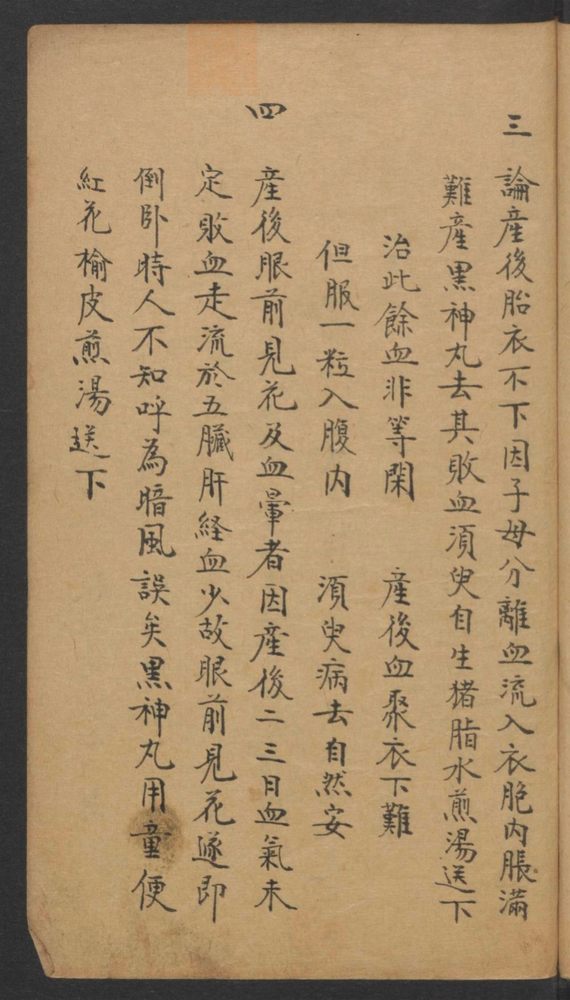 三 論產後胎衣不下因子母分離血流入衣胞内脹滿
難產黑神丸去其敗血須臾自生猪脂水煎湯送下
治此餘血非等閑 產後血聚衣下難
但服一粒入腹内 須臾病去自然安
四 產後眼前見花及血暈者因產後二三日血氣未
定敗血走流於五臟肝経血少故眼前見花遂即
倒卧時人不知呼為暗風誤矣黑神丸用童便
紅花榆皮煎湯送下